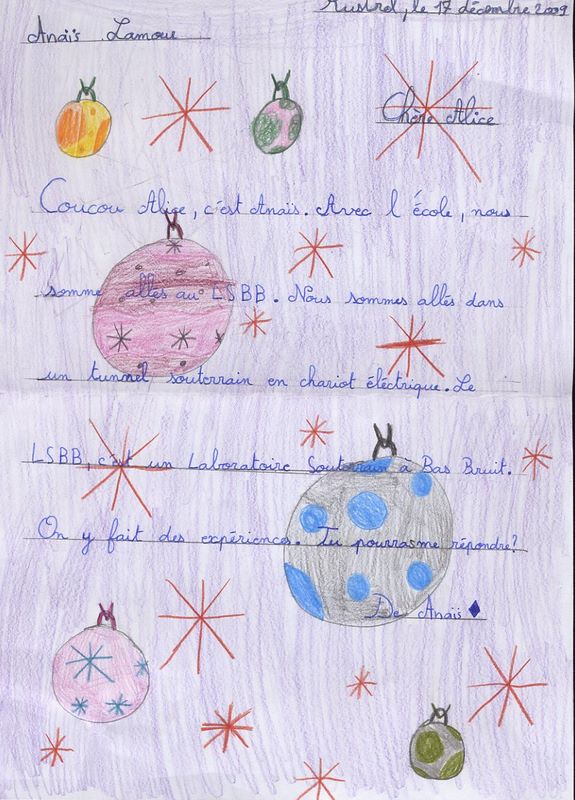 Rustrel, le 17 décembre 2009
Anaïs Lamour
Chère Alice
Coucou Alice, c'est Anaïs. Avec l'école, nous
somme allés au LSBB. Nous sommes allés dans
un tunnel souterrain en chariot électrique. Le
LSBB, c'est un Laboratoire Souterrain a Bas Bruit.
On y fait des expériences. Tu pourras me répondre?
De Anaïs